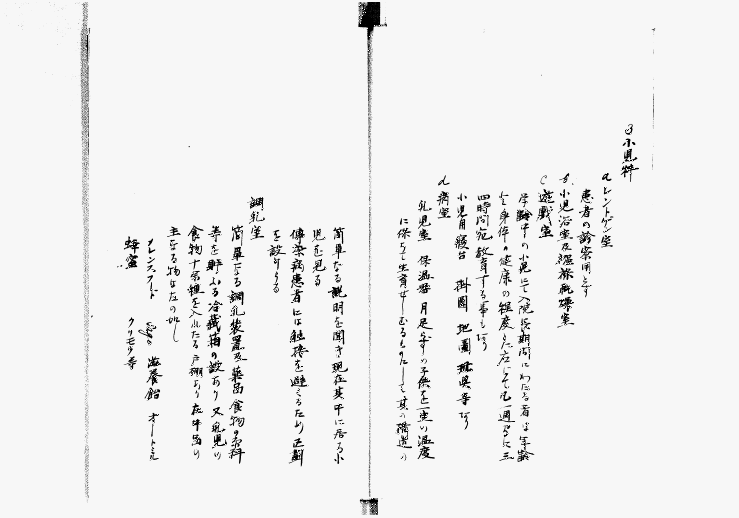 3 小児科
a レントゲン室
患者の診察用とす
b 小児浴室及繃帯乾燥室
c 遊戯室
学齢中の小児にて入院長期間にわたる者は年齢
と身体の健康の程度に応じて一週に三
四時間宛教育する事もあり
小児用寝台 掛図 地図 玩具等あり
d 病室
乳児室 保温器 月足らずの子供を一定の温度
に保ちて生育せしむるものにして其の構造の
簡単なる説明を聞き現在其中に居る小
児を見る
傳染病患者には触接を避くるため区劃
を設けてある
調乳室
簡単なる調乳装置及薬品食物の原料
等を貯ふる冷蔵箱の設あり 又乳児の
食物十余種を入れたる戸棚あり 在中品の
主なる物は左の如し
メレンスフード 滋養飴 オートミル
蜂蜜 クリモウ等